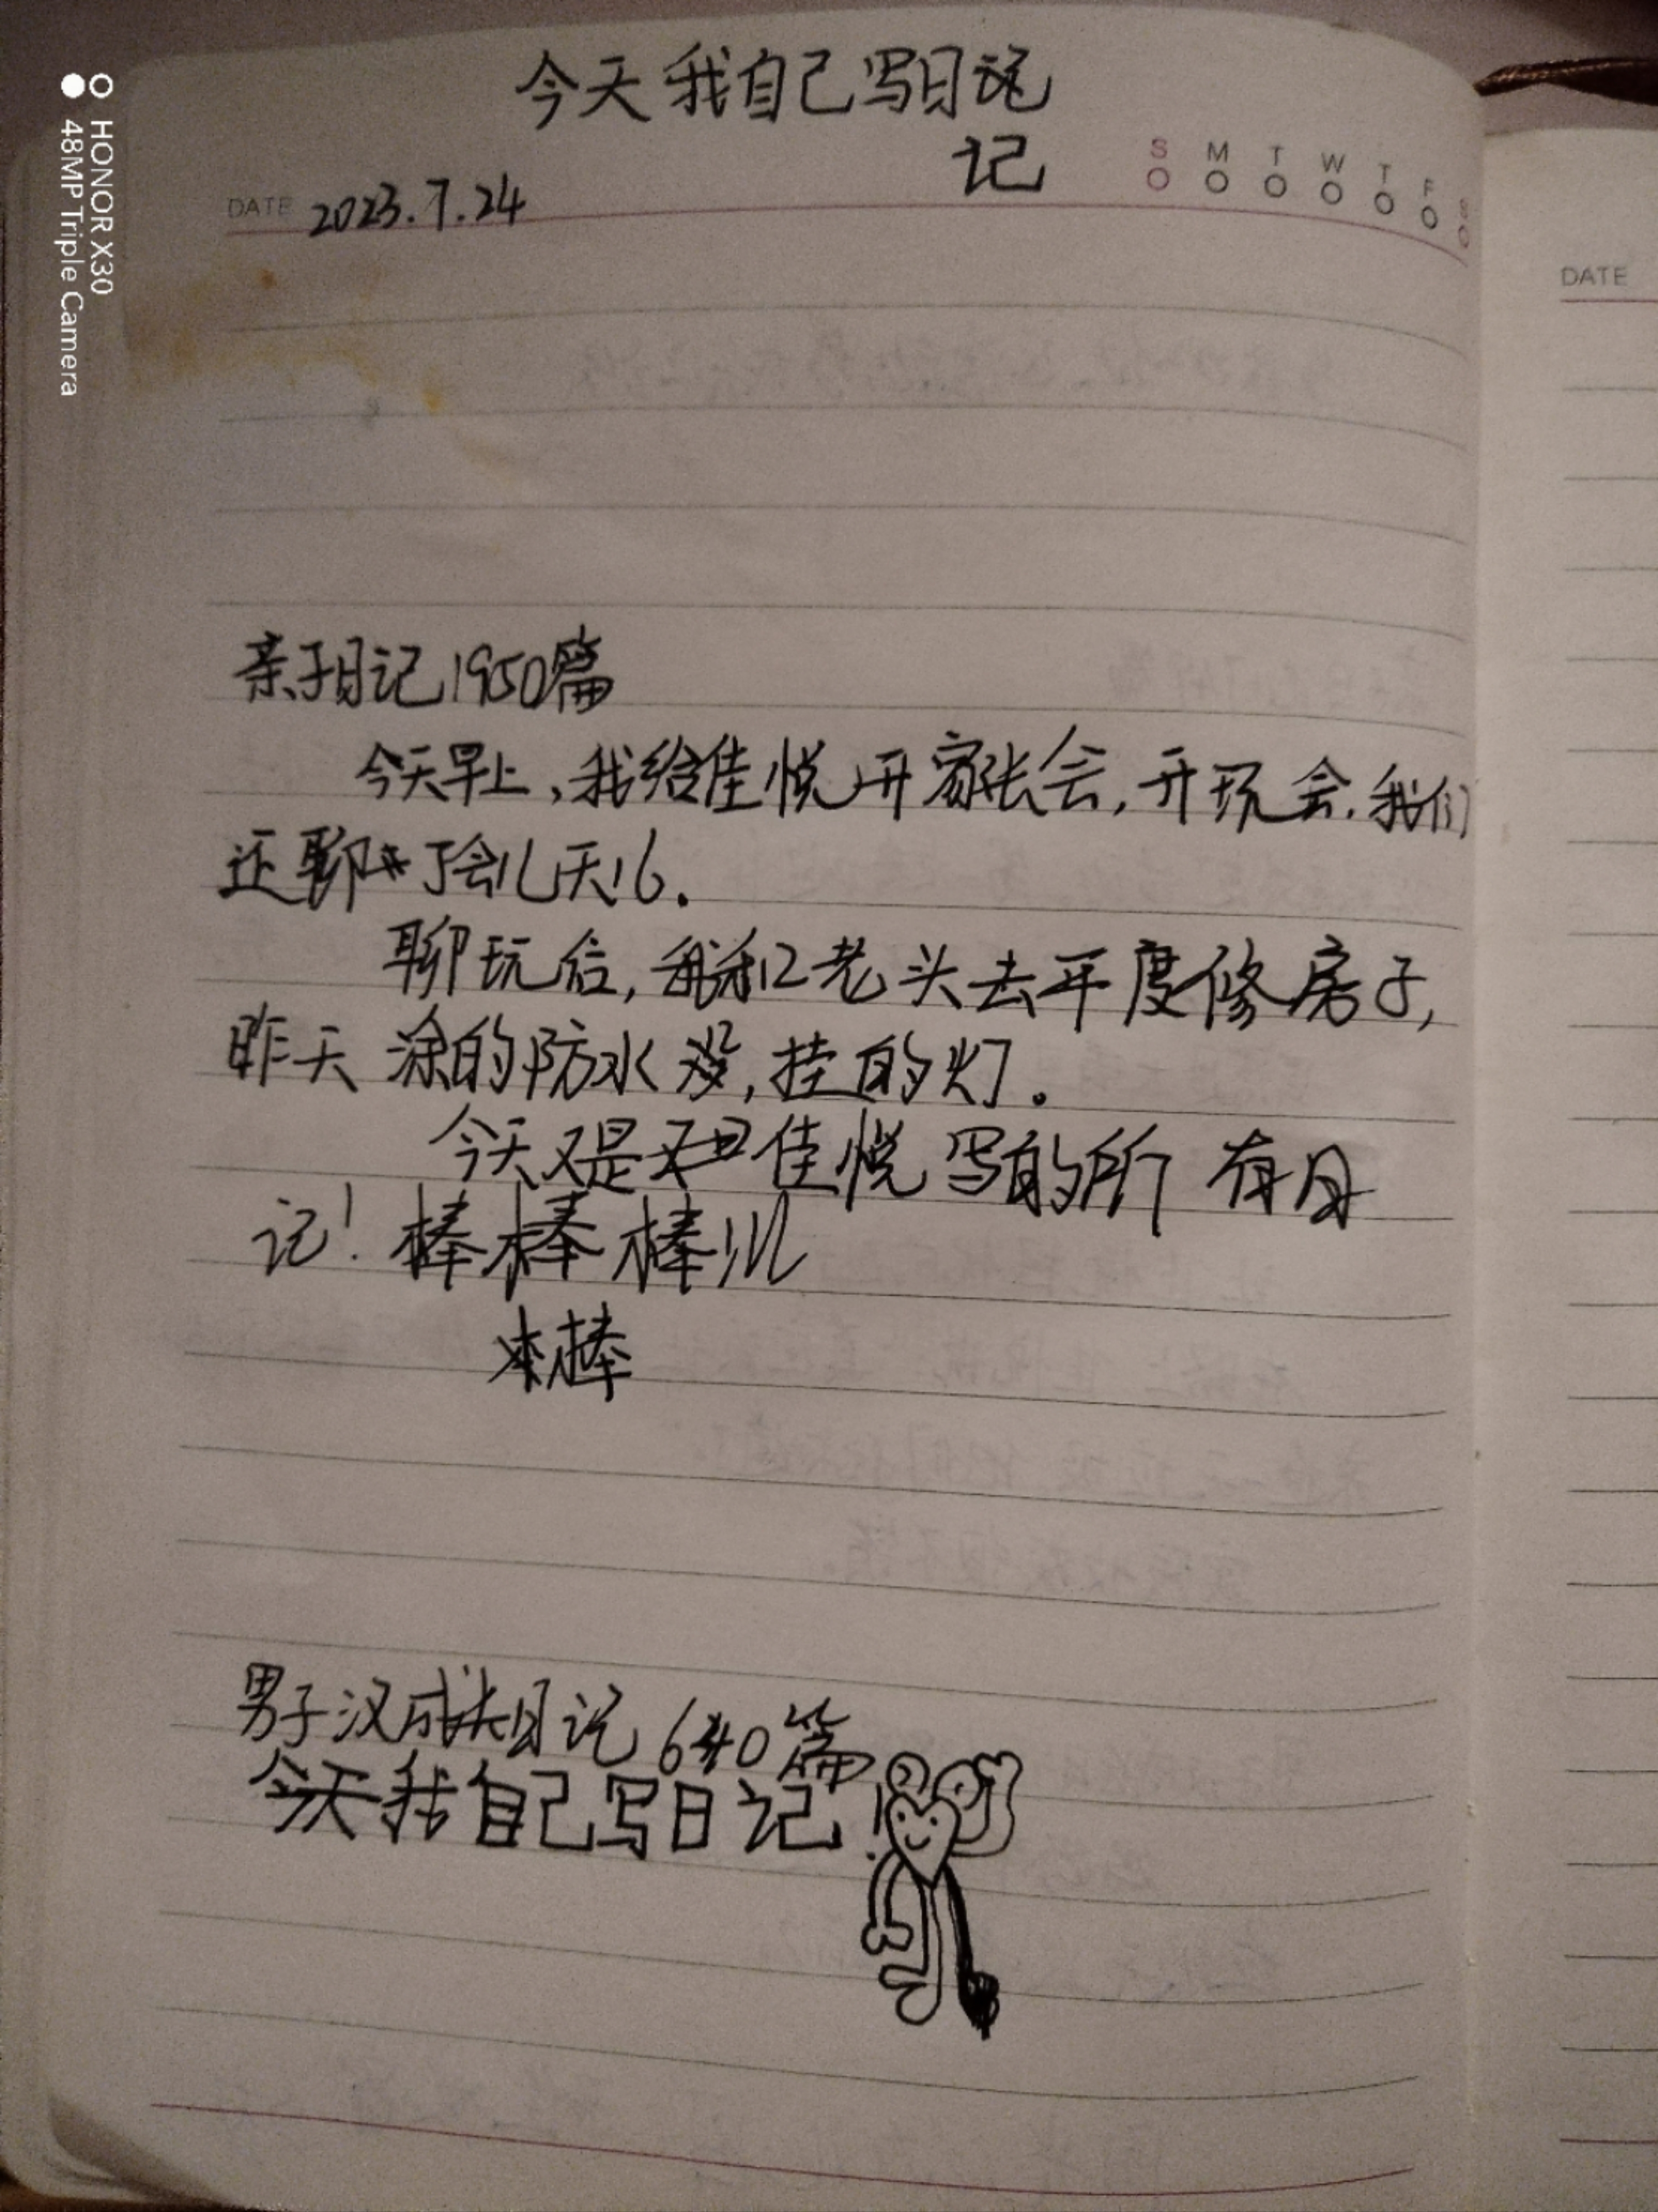 今天我自己写日记
记
DATE 2023.7.24
S M T W T F S
亲子日记1950篇
今天早上,我给佳悦开家长会,开玩会,我们
还聊了会儿天16.
聊玩后,我和老头去平度修房子,
昨天涂的防水没,挂的灯。
今天又是佳悦写的所有日
记!棒棒棒!!!
棒
男子汉成长日记640篇
今天我自己写日记!
DATE
HONOR X30
48MP Triple Camera